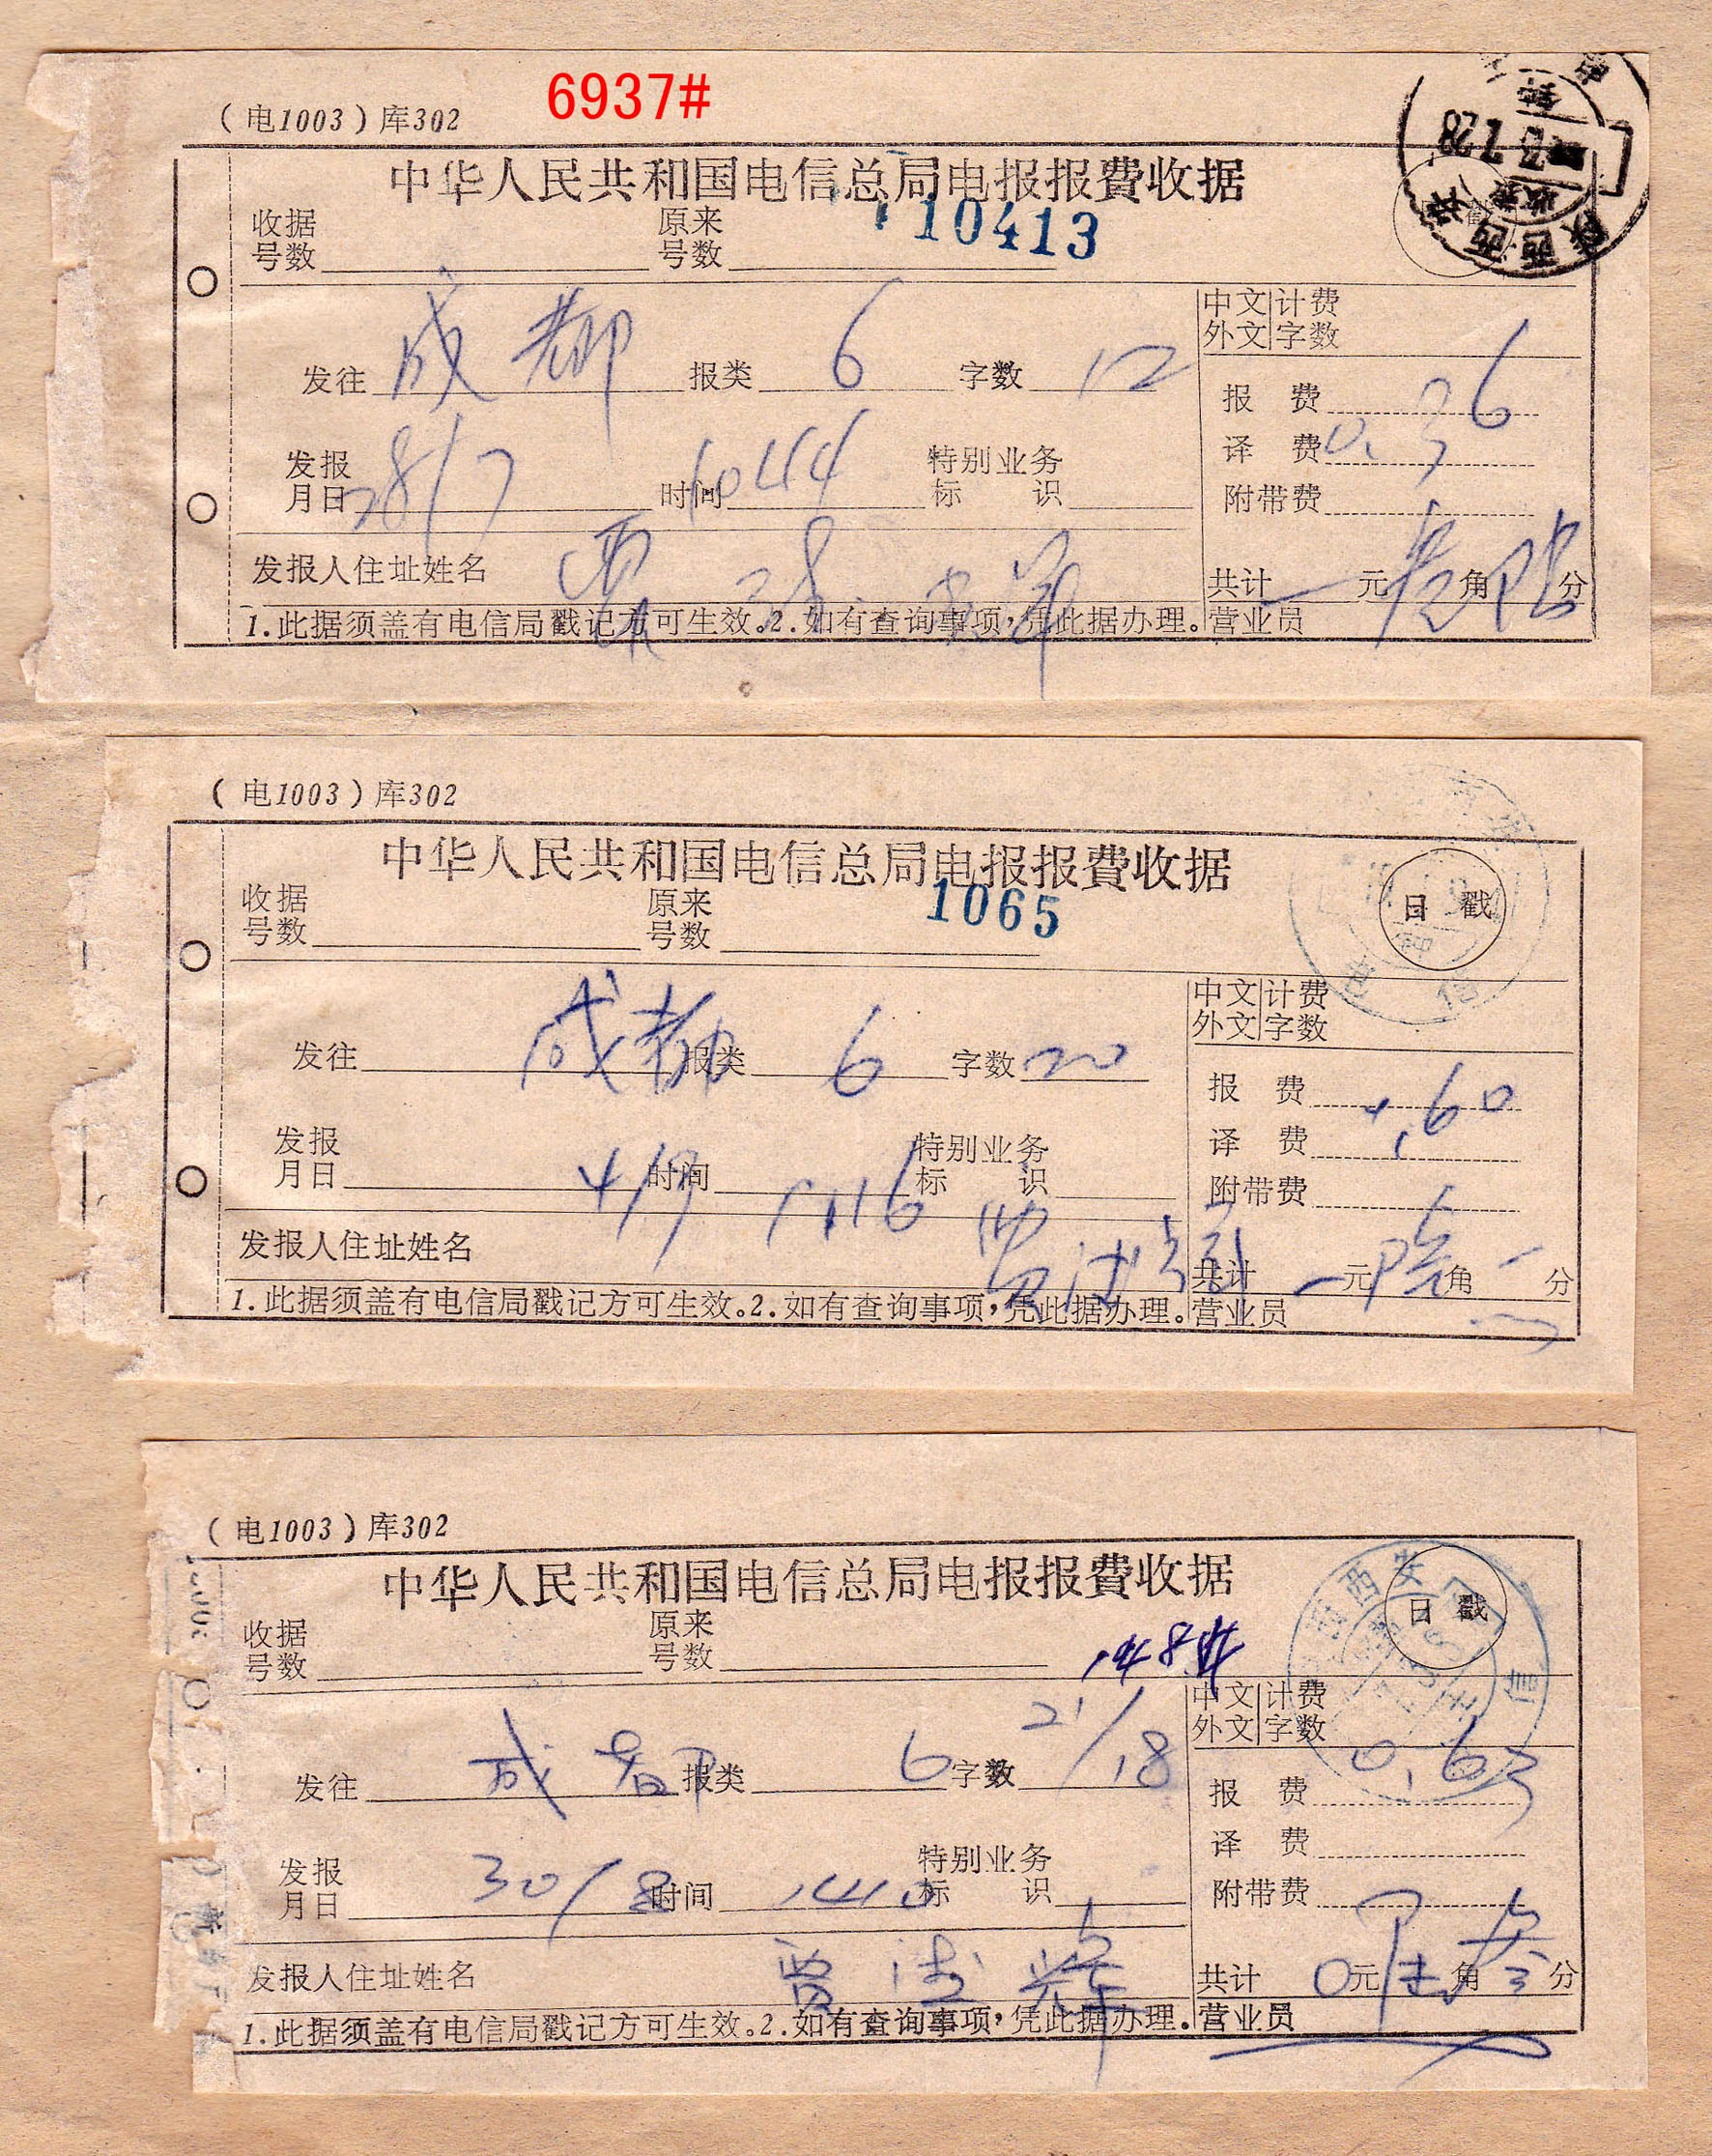 6937#
(电1003)库302
中华人民共和国电信总局电报报費收据
收据号数 原来号数 10413
73 7 28
中文 计费
外文 字数
发往 成都 报类 6 字数 12
报 费
译 费 0.36
发报月日 28/7 时间 1044 特别业务标识
附带费
发报人住址姓名 贾
共计 元叁角陆分
1.此据须盖有电信局戳记方可生效。2.如有查询事项,凭此据办理。营业员
(电1003)库302
中华人民共和国电信总局电报报費收据
收据号数 原来号数 1065
日 戳
中文 计费
外文 字数
发往 成都 报类 6 字数 20
报 费 .60
译 费
发报月日 4/9 时间 1116 特别业务标识
附带费
发报人住址姓名 贾
共计 元陆角 分
1.此据须盖有电信局戳记方可生效。2.如有查询事项,凭此据办理。营业员
(电1003)库302
中华人民共和国电信总局电报报費收据
收据号数 原来号数
日 戳
西安
中文 计费
外文 字数
发往 成都 报类 6 字数 21/18
报 费 0.63
译 费
发报月日 30/8 时间 1410 特别业务标识
附带费
发报人住址姓名 贾 辉
共计 0元陆角叁分
1.此据须盖有电信局戳记方可生效。2.如有查询事项,凭此据办理。营业员